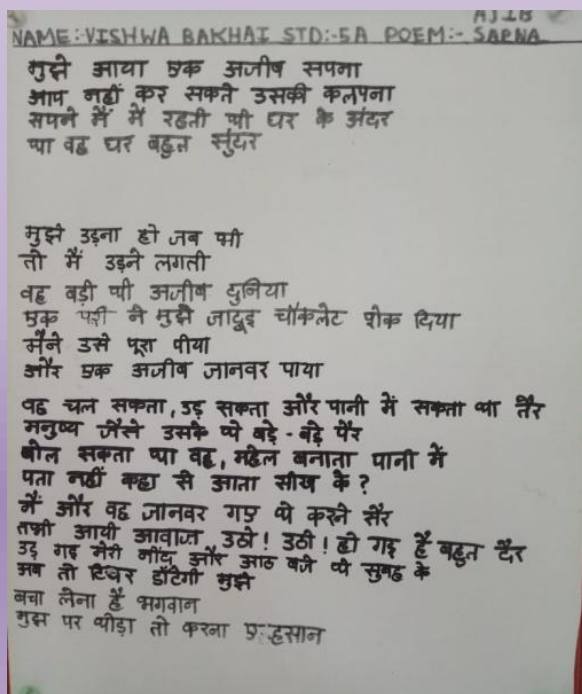 AJIB
NAME:-VISHWA BAKHAI STD:-5A POEM:- SAPNA
मुझे आया एक अजीब सपना
आप नहीं कर सकते उसकी कलपना
सपने मैं में रहती थी घर के अंदर
था वह घर बहुत सुंदर
मुझे उड़ना हो जब भी
तो मैं उड़ने लगती
वह बड़ी थी अजीब दुनिया
एक परी ने मुझे जादूइ चॉकलेट शेक दिया
मैंने उसे पूरा पीया
और एक अजीब जानवर पाया
वह चल सकता, उड़ सकता और पानी में सकता था तैर
मनुष्य जैसे उसके थे बड़े-बड़े पैर
बोल सकता था वह, महेल बनाता पानी में
पता नहीं कहा से आता सीख के?
मैं और वह जानवर गए थे करने सैर
तभी आयी आवाज उठो! उठी! हो गइ है बहुत देर
उड़ गइ मेरी नींद और आठ बजे थे सुबह के
अब तो टिचर डाँटेगी मुझे
बचा लेना हे भगवान
मुझ पर थोड़ा तो करना एहसान